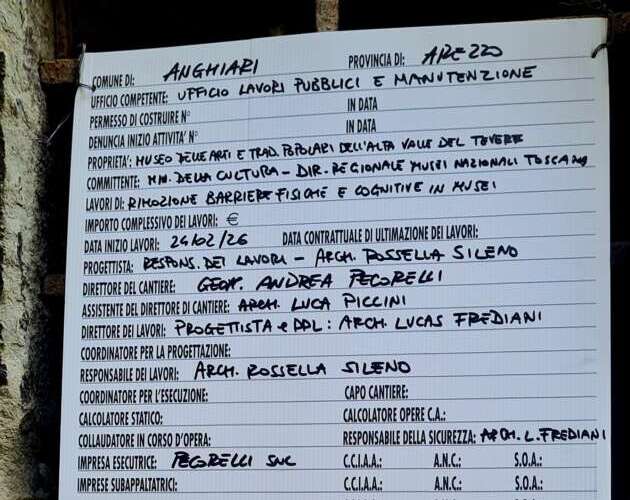 COMUNE DI: ANGHIARI PROVINCIA DI: AREZZO
UFFICIO COMPETENTE: UFFICIO LAVORI PUBBLICI E MANUTENZIONE
PERMESSO DI COSTRUIRE N° IN DATA
DENUNCIA INIZIO ATTIVITA' N° IN DATA
PROPRIETA': MUSEO DELLE ARTI E TRAD. POPOLARI DELL'ALTA VALLE DEL TEVERE
COMMITTENTE: MN. DELLA CULTURA - DIR. REGIONALE MUSEI NAZIONALI TOSCANA
LAVORI DI: RIMOZIONE BARRIERE FISICHE E COGNITIVE IN MUSEI
IMPORTO COMPLESSIVO DEI LAVORI: €
DATA INIZIO LAVORI: 24/02/26 DATA CONTRATTUALE DI ULTIMAZIONE DEI LAVORI:
PROGETTISTA: RESPONS. DEI LAVORI - ARCH. ROSSELLA SILENO
DIRETTORE DEL CANTIERE: GEOM. ANDREA PECORELLI
ASSISTENTE DEL DIRETTORE DI CANTIERE: ARCH. LUCA PICCINI
DIRETTORE DEI LAVORI: PROGETTISTA e DDL: ARCH. LUCAS FREDIANI
COORDINATORE PER LA PROGETTAZIONE:
RESPONSABILE DEI LAVORI: ARCH. ROSSELLA SILENO
COORDINATORE PER L'ESECUZIONE: CAPO CANTIERE:
CALCOLATORE STATICO: CALCOLATORE OPERE C.A.:
COLLAUDATORE IN CORSO D'OPERA: RESPONSABILE DELLA SICUREZZA: ARCH. L. FREDIANI
IMPRESA ESECUTRICE: PECORELLI SNC C.C.I.A.A.: A.N.C.: S.O.A.:
IMPRESE SUBAPPALTATRICI: C.C.I.A.A.: A.N.C.: S.O.A.: